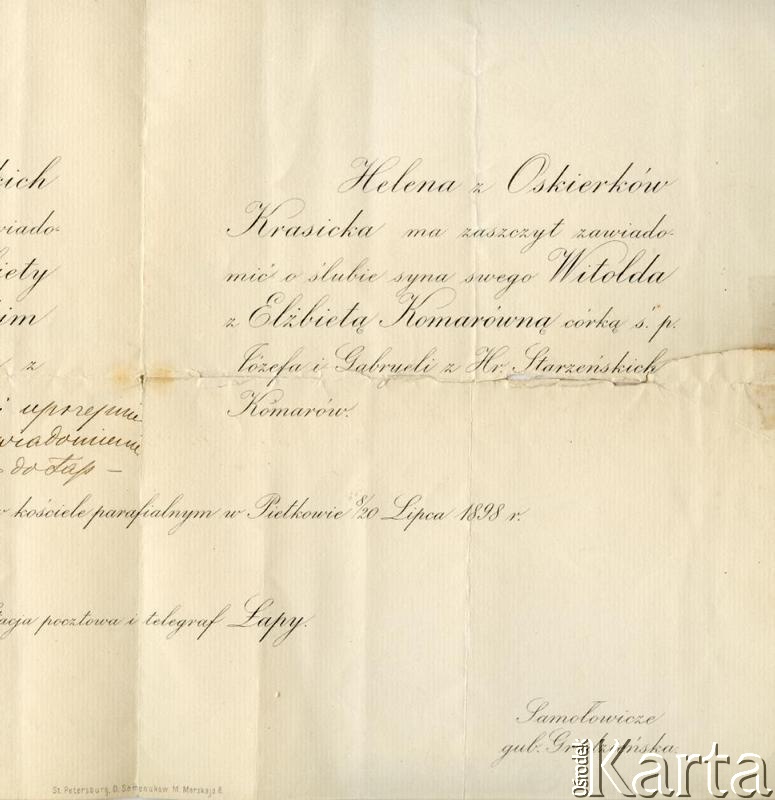 kich
Helena z Oskierków
wiado-
Krasicka ma zaszczyt zawiado-
biety
mić o ślubie syna swego Witolda
kim
z Elżbietą Komarówną córką ś. p.
z
Józefa i Gabryeli z Hr. Starzeńskich
Komarów.
i uprzejmie
wiadomienie
do Łap —
w kościele parafialnym w Pietkowie 8/20 Lipca 1898 r.
tacja pocztowa i telegraf Łapy.
Samołowicze
gub. Grodzieńska.
St. Petersburg, D. Semenukow M. Morskaja 6.
Ośrodek Karta